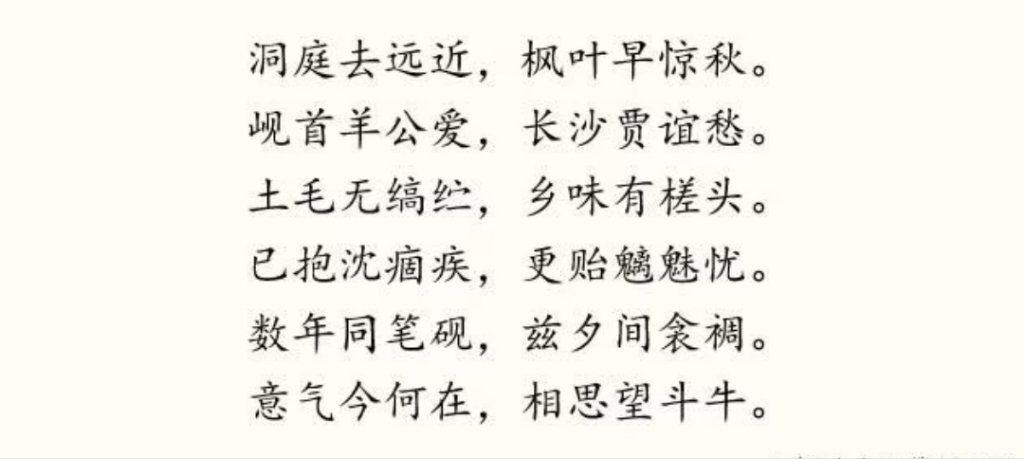 洞庭去远近，枫叶早惊秋。
岘首羊公爱，长沙贾谊愁。
土毛无缟纻，乡味有槎头。
已抱沈痼疾，更贻魑魅忧。
数年同笔砚，兹夕间衾裯。
意气今何在，相思望斗牛。